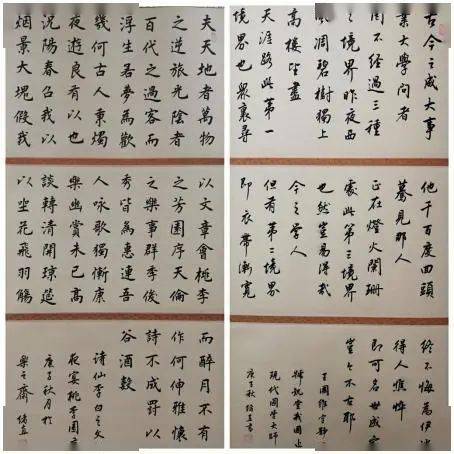 夫天地者萬物
之逆旅光陰者
百代之過客而
浮生若夢為歡
幾何古人秉燭
夜遊良有以也
況陽春召我以
烟景大塊假我
以文章會桃李
之芳園序天倫
之樂事群季俊
秀皆為惠連吾
人詠歌獨慚康
樂幽賞未已高
談轉清開瓊筵
以坐花飛羽觴
而醉月不有
作何伸雅懷
詩不成罰以
谷酒數
詩仙李白之文
夜宴桃李園
庚子秋月於
樂之齋
古今之成大事
業大學問者
罔不經過三種
之境界昨夜西
風凋碧樹獨上
高樓望盡
天涯路此第一
境界也眾裏尋
他千百度回頭
驀見那人
正在燈火闌珊
處此第三境界
也然豈易得哉
今之學人
但有第二境界
即衣帶漸寬
終不悔為伊
得人憔悴
即可名世成
豈不古耶
王國維
我國
現代國學大師
庚子秋書